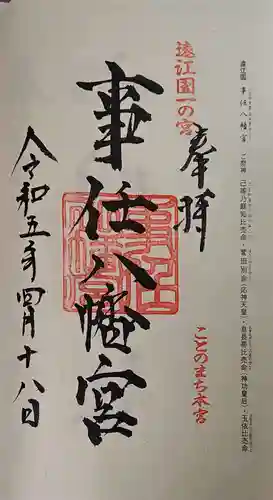 遠江國 事任八幡宮 ご祭神 己等乃麻知比売命・誉田別命(応神天皇)・息長帯比売命(神功皇后)・玉依比売命
遠江國一の宮
奉拝
ことのまち本宮
事任八幡宮
令和五年四月十八日